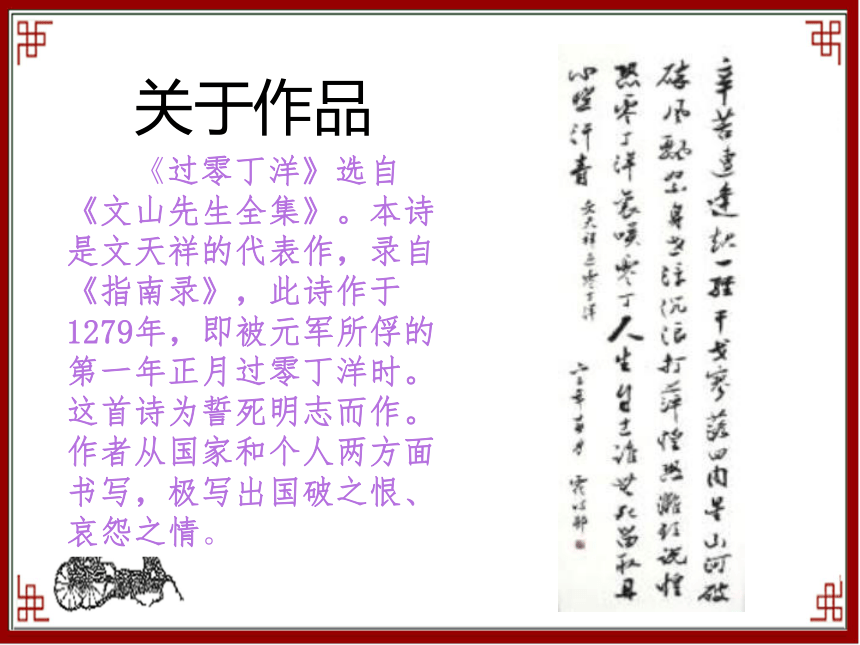 关于作品
《过零丁洋》选自
《文山先生全集》。本诗
是文天祥的代表作，录自
《指南录》，此诗作于
1279年，即被元军所俘的
第一年正月过零丁洋时。
这首诗为誓死明志而作。
作者从国家和个人两方面
书写，极写出国破之恨、
哀怨之情。
辛苦遭逢起一经干戈寥落四周星山河破
碎风飘絮身世浮沉浪打萍惶恐滩头说惶
恐零丁洋里叹零丁人生自古谁无死留取丹
心照汗青 文天祥过零丁洋